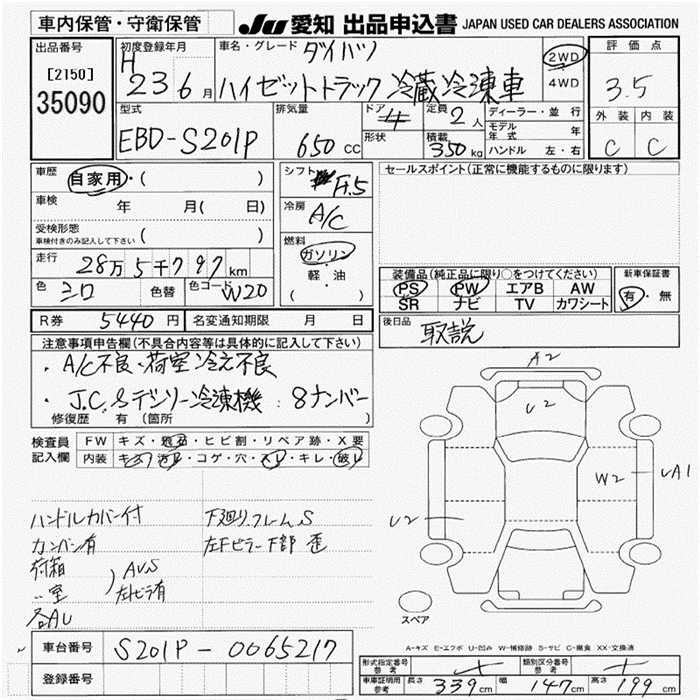 車内保管・守衛保管
JU 愛知 出品申込書 JAPAN USED CAR DEALERS ASSOCIATION
出品番号
[2150]
35090
初度登録年月
H 23 6 月
車名・グレード ダイハツ
ハイゼットトラック 冷蔵冷凍車
2WD
4WD
評価点
3.5
外装 内装
C C
型式
EBD-S201P
排気量
650 CC
ドア 4
形状
定員 2 人
積載 350 kg
ディーラー・並行
モデル年式 年
ハンドル 左・右
車歴 自家用・( )
車検 年 月( 日)
受検形態
車検付きのみ記入して下さい ( )
走行 28万5千797 km
色 シロ 色替 色コード W20
シフト F.5
冷房 A/C
燃料
ガソリン
軽・油
( )
セールスポイント(正常に機能するものに限ります)
装備品(純正品に限り○をつけてください)
PS PW エアB AW
SR ナビ TV カワシート
新車保証書
有・無
R券 5440 円 名変通知期限 月 日
後日品 取説
注意事項申告欄(不具合内容等は具体的に記入して下さい)
・A/C不良・荷室冷え不良
・J.C.&デンソー冷凍機:8ナンバー
修復歴 有(箇所 )
検査員記入欄
FW キズ・飛石・ヒビ割・リペア跡・X要
内装 キズ・汚れ・コゲ・穴・スレ・キレ・破レ
ハンドルカバー付
カンバン有
荷箱
〃室
AUS
左ドビラ有
各AU
下廻り.フレームS
左Fピラー下部 歪
A2
U2
W2
UA1
U2
スペア
A-キズ E-エクボ U-凹み W-補修跡 S-サビ C-腐食 XX-交換済
車台番号 S201P-0065217
登録番号
形式指定番号参考
類別区分番号参考
車庫証明用参考 長さ 339 cm 幅 147 cm 高さ 199 cm